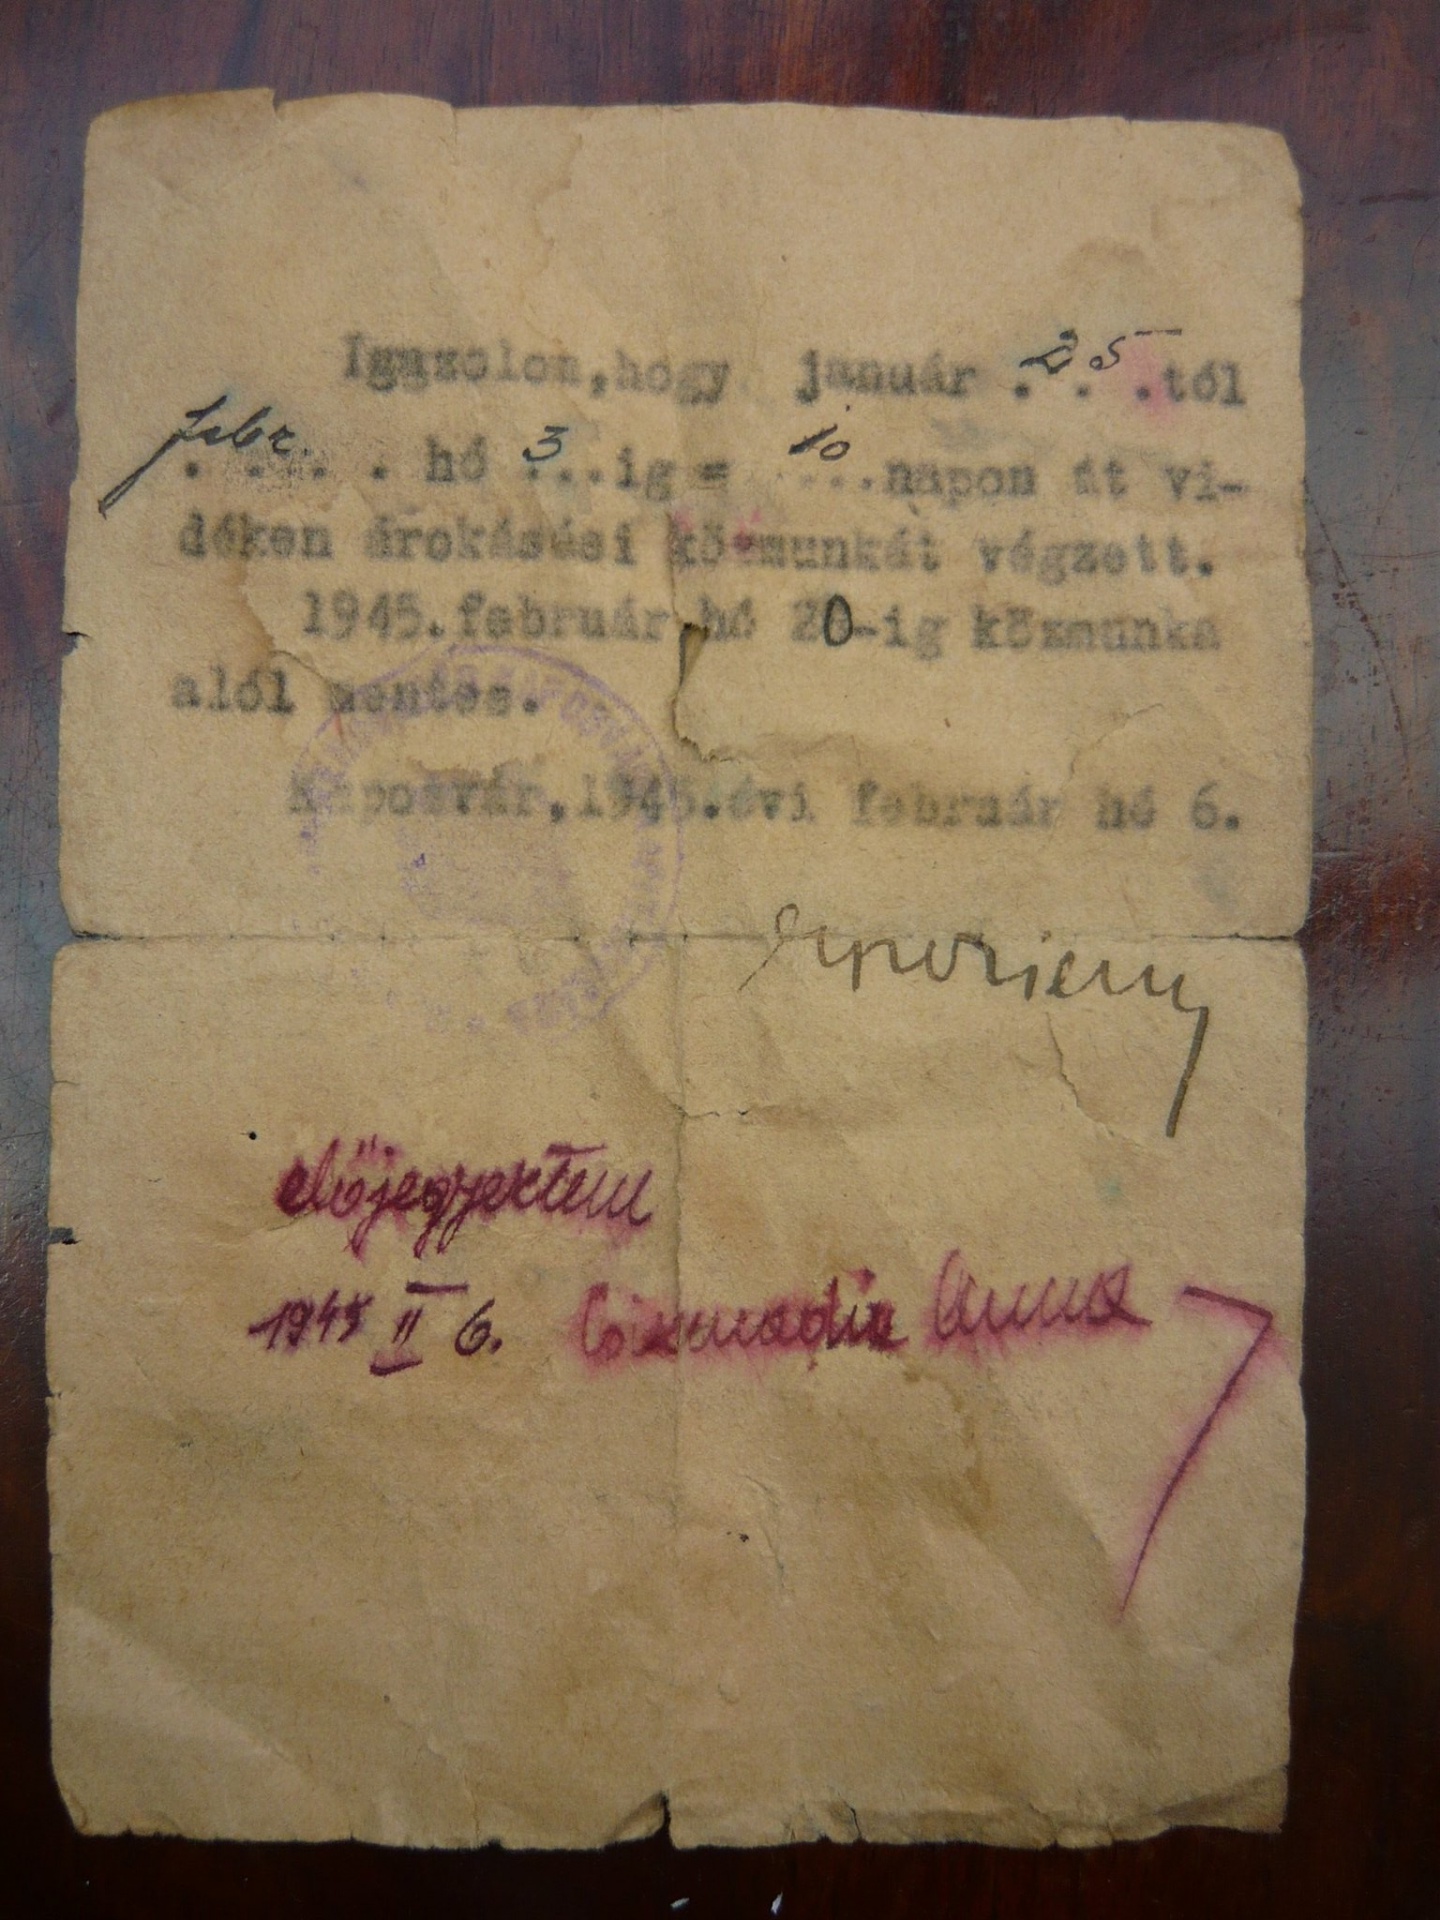 Igazolom,hogy január .25.tól
febr. . hó 3...ig = 10...napon át vi-
déken árokásási közmunkát végzett.
1945.február hó 20-ig közmunka
alól mentes.
Kaposvár,1945.évi február hó 6.
előjegyeztem
1945 II 6. Csizmadia Anna